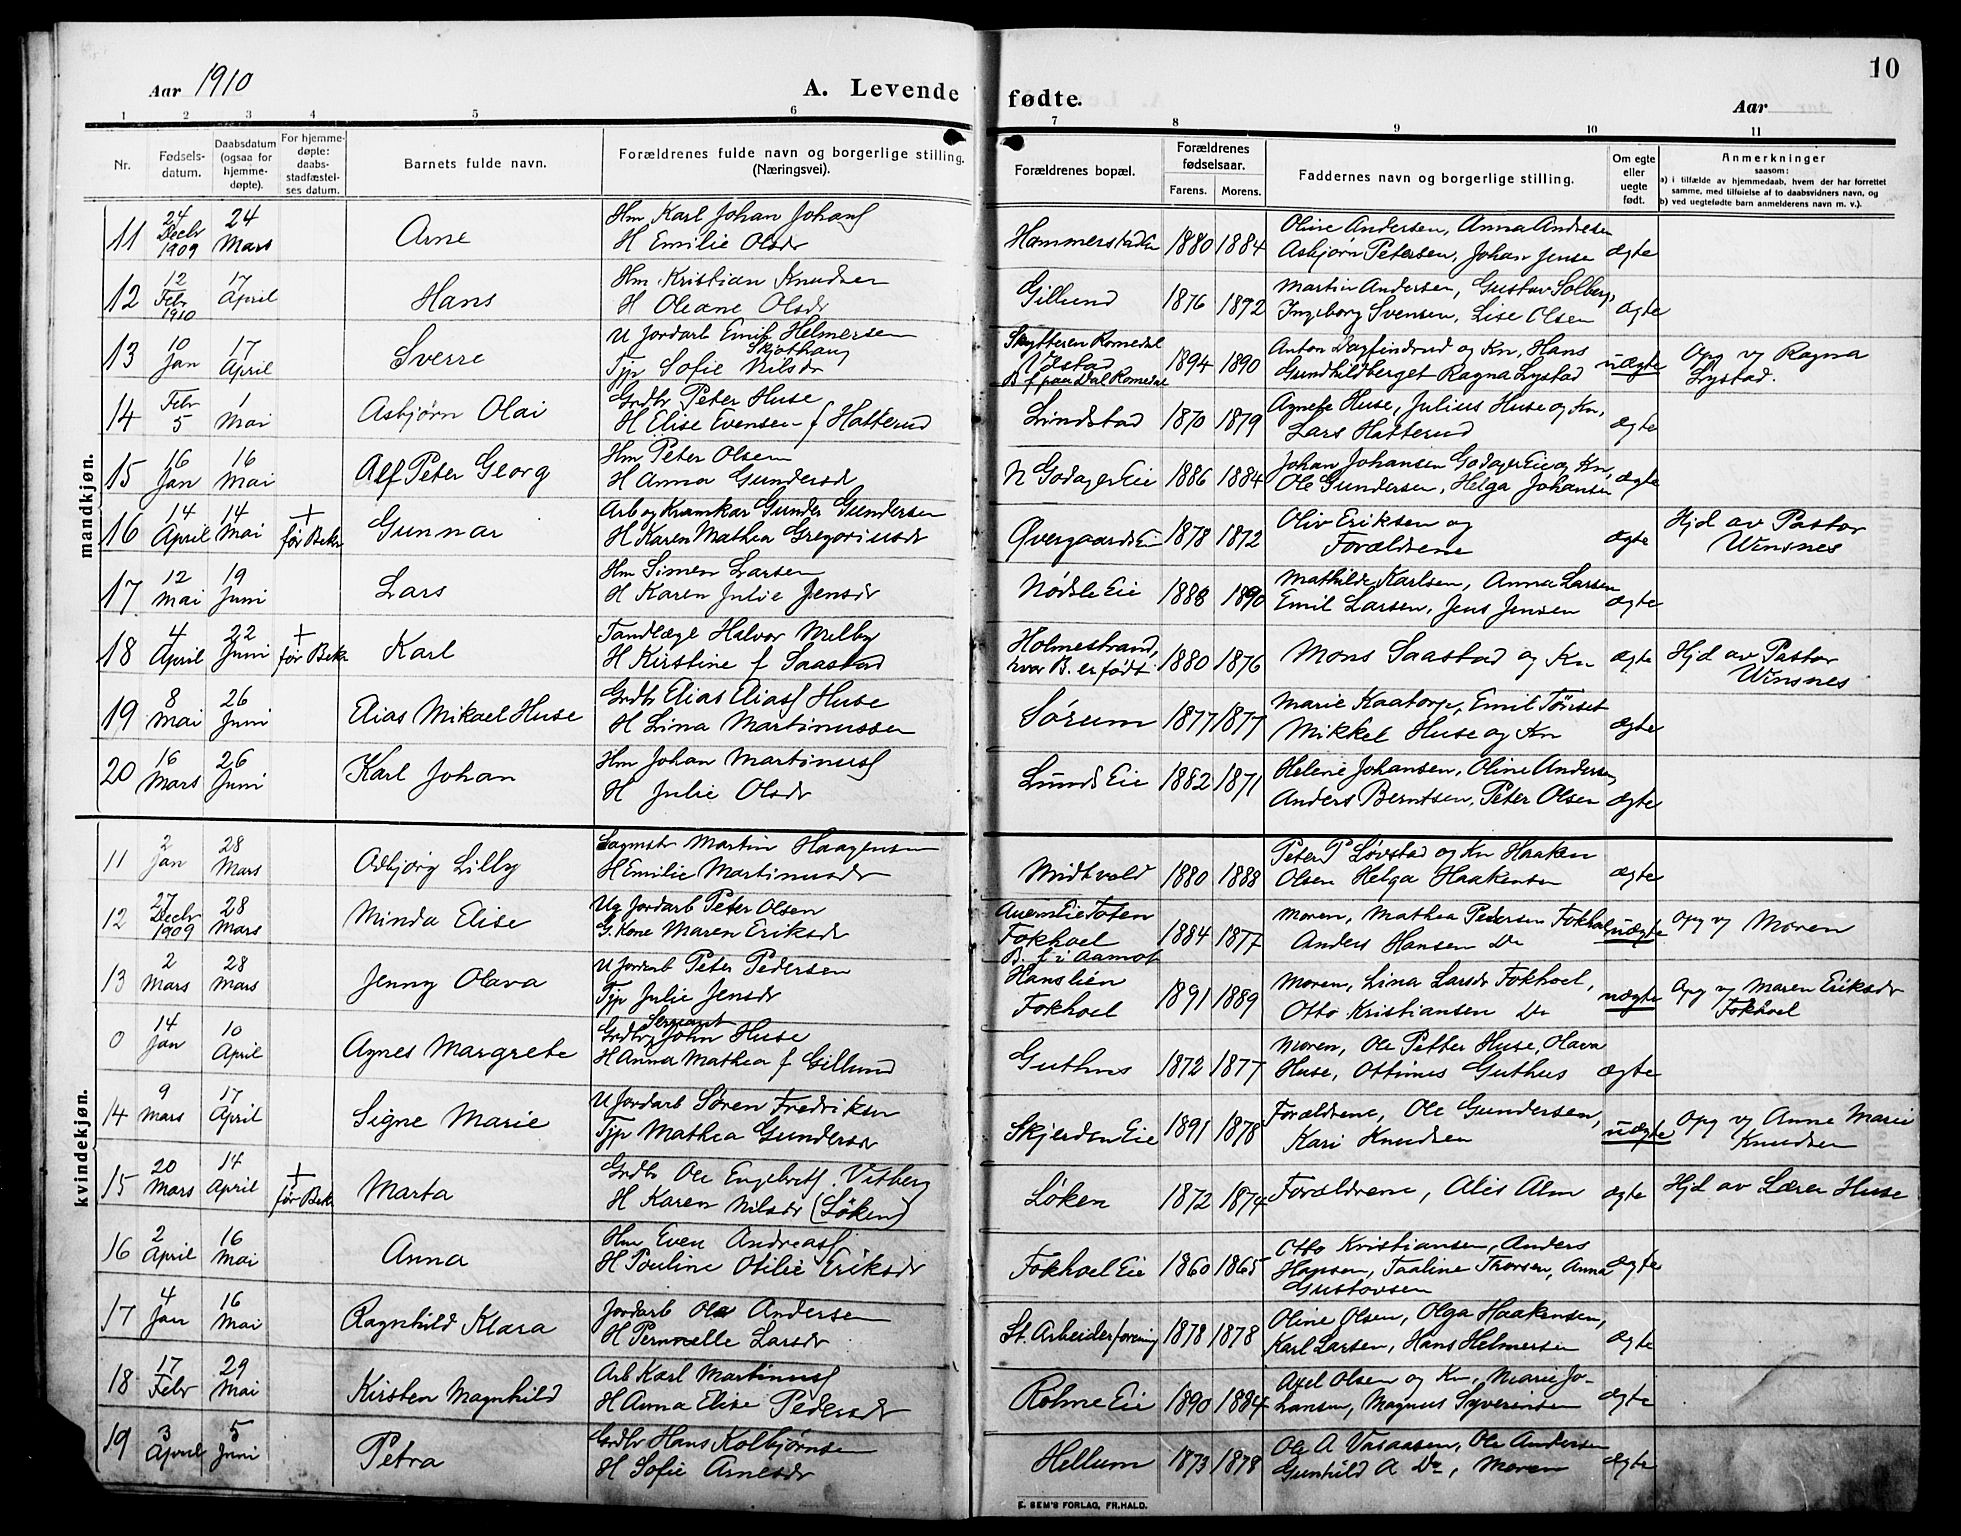 Aar 1910
A. Levende
fødte.
Aar
10
1 2 3 4 5 6
7 8 9 10 11
Nr.
Fødsels-
datum.
Daabsdatum
(ogsaa for
hjemme-
døpte).
For hjemme-
døpte:
daabs-
stadfæstel-
ses datum.
Barnets fulde navn.
Forældrenes fulde navn og borgerlige stilling.
(Næringsvei).
Forældrenes bopæl.
Forældrenes
fødselsaar.
Farens. Morens.
Faddernes navn og borgerlige stilling.
Om egte
eller
uegte
født.
Anmerkninger
saasom:
a) i tilfælde av hjemmedaab, hvem der har forrettet
samme, med tilføielse af to daabsvidners navn, og
b) ved uegtefødte barn anmelderens navn m. v.).
mandkjøn.
11
24
Decbr
1909
24
Mars
Arne
Hm Karl Johan Johans
H Emilie Olsdr
1880 1884
Oline Andersen, Anna Andresen
Asbjørn Petersen, Johan Jensen
ægte
12
12
Febr
1910
17
April
Hans
Hm Kristian Knudsen
H Oleane Olsdr
Gillund
1876 1872
Martin Andersen, Gustav Solberg,
Ingeborg Svensen, Lise Olsen
ægte
13
10
Jan
17
April
Sverre
U Jordarb Emil Helmersen
Skjæthaug
Tjp Sofie Nilsdr
Skytteren Romedal
B f paa Dal Romedal
1894 1890
Anton Dagfindrud og Kn, Hans
Gundhildberget Ragna Lystad
uægte
Opg v/ Ragna
Lystad.
14
Febr
5
1
Mai
Asbjørn Olai
Grdbr Peter Huse
H Elise Evensen f Hatterud
Lindstad
1870 1879
Agnete Huse, Julius Huse og Kn,
Lars Hatterud
ægte
15
16
Jan
16
Mai
Alf Peter Georg
Hm Peter Olsen
H Anna Gundersdr
N Godager Eie
1886 1884
Johan Johansen Godager Eie og Kn,
Ole Gundersen, Helga Johansen
ægte
16
14
April
14
Mai
+
før Bekr
Gunnar
Arb og Kramkar Gunder Gundersen
H Karen Mathea Gregoriusdr
Øvergaards Ei
1878 1872
Oliv Eriksen og
Forældrene
ægte
Hjd av Pastor
Winsnes
17
12
Mai
19
Juni
Lars
Hm Simen Larsen
H Karen Julie Jensdr
Nødsle Eie
1888 1890
Mathilde Karlsen, Anna Larsen
Emil Larsen, Jens Jensen
ægte
18
4
April
22
Juni
+
før Bekr
Karl
Tandlæge Halvor Melby
H Kirstine f Saastad
Holmestrand,
hvor B. er født
1880 1876
Mons Saastad og Kn
ægte
Hjd av Pastor
Winsnes
19
8
Mai
26
Juni
Elias Mikael Huse
Grdbr Elias Eliass Huse
H Lina Martinussen
Sørum
1877 1877
Marie Kaatorp, Emil Tørset
Mikkel Huse og Kn
ægte
20
16
Mars
26
Juni
Karl Johan
Hm Johan Martinuss
H Julie Olsdr
Lunds Eie
1882 1871
Helene Johansen, Oline Andersen,
Anders Berntsen, Peter Olsen
ægte
kvindekjøn.
11
2
Jan
28
Mars
Odbjørg Lilly
Sagmstr Martin Haagensen
H Emilie Martinusdr
Midtvold
1880 1888
Peter P Løvstad og Kn Haaken
Olsen Helga Haakensen
ægte
12
27
Decbr
1909
28
Mars
Minda Elise
Ug Jordarb Peter Olsen
G. Kone Maren Eriksdr
Fokhoel
B. f i Aamot
1884 1877
Moren, Mathea Pedersen Fokhoel
Anders Hansen Do
uægte
Opg v/ Moren
13
2
Mars
28
Mars
Jenny Olava
U Jordarb Peter Pedersen
Tjp Julie Jensdr
Hanslien
Fokhoel
1891 1889
Moren, Lina Larsdr Fokhoel,
Otto Kristiansen Do
uægte
Opg v/ Maren Eriksdr
Fokhoel
0
14
Jan
10
April
Agnes Margrete
Sergeant
Grdbr, John Huse
H Anna Mathea f Gillund
Guthus
1872 1877
Moren, Ole Petter Huse, Olava
Huse, Ottinus Guthus
ægte
14
9
Mars
17
April
Signe Marie
U Jordarb Søren Fredriksen
Tjp Mathea Gundersdr
Skjerden Eie
1891 1878
Forældrene, Ole Gundersen,
Kari Knudsen
uægte
Opg v/ Anne Marie
Knudsen
15
20
Mars
14
April
+
før Bekr
Marta
Grdbr Ole Engebrets. Vitberg
H Karen Nilsdr (Løken)
Løken
1872 1874
Forældrene, Alis Alm
ægte
Hjd av Lærer Huse
16
2
April
16
Mai
Anna
Hm Even Andreass
H Pouline Otilie Eriksdr
Fokhoel Eie
1860 1865
Otto Kristiansen, Anders
Hansen, Taaline Thorsen, Anna
Gustavsen
ægte
17
4
Jan
16
Mai
Ragnhild Klara
Jordarb Ole Andersen
H Pernnelle Larsdr
St. Arbeiderforening
1878 1878
Oline Olsen, Olga Haakensen,
Karl Larsen, Hans Helmersen
ægte
18
17
Febr
29
Mai
Kirsten Magnhild
Arb Karl Martinuss
H Anna Elise Pedersdr
Rohme Eie
1890 1884
Axel Olsen og Kn, Marie Jo-
hansen, Magnus Syverinsen
ægte
19
3
April
5
Juni
Petra
Grdbr Hans Kolbjørnsen
H Sofie Arnesdr
Hellum
1873 1878
Ole A Vasaasen, Ole Andersen
Gunhild A Do, Moren
ægte
E. SEM'S FORLAG, FR.HALD.